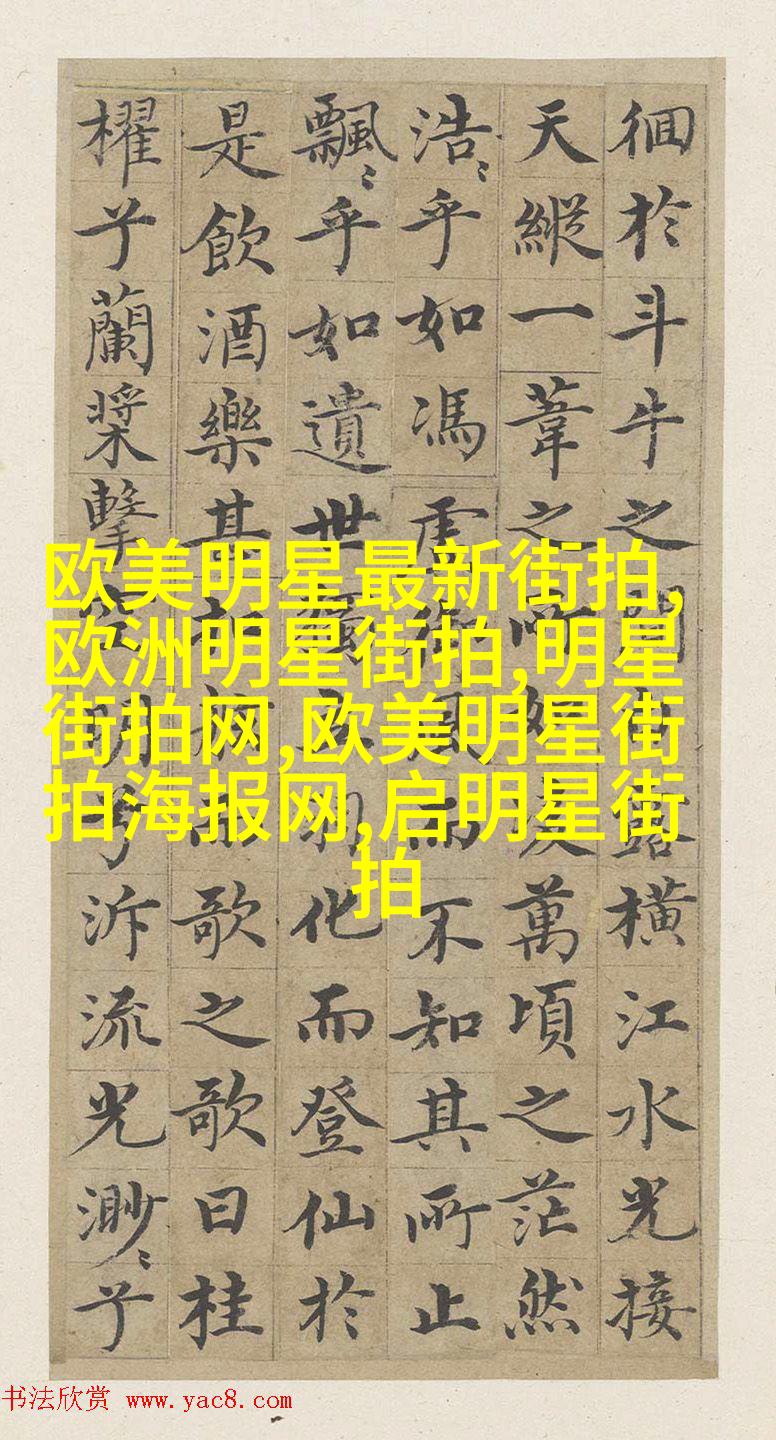 徊於斗牛之間露橫江水光接
天縱一葦之所如萬頃之茫然
浩〻乎如馮虛御風而不知其所止
飄〻乎如遺世獨立羽化而登仙於
是飲酒樂甚而歌之歌曰桂
櫂兮蘭槳擊空明兮泝流光渺〻兮
欧美明星最新街拍,
欧洲明星街拍,明星
街拍网,欧美明星街
拍海报网,启明星街
拍
书法欣赏 www.yac8.com